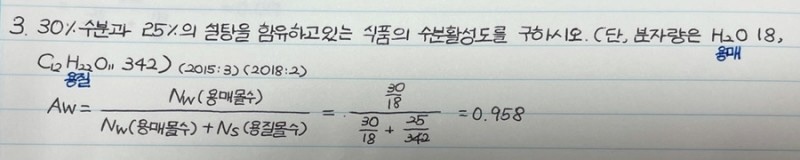 3. 30% 수분과 25%의 설탕을 함유하고있는 식품의 수분활성도를 구하시오. (단, 분자량은 H₂O 18,
용매
C₁₂H₂₂O₁₁ 342) (2015:3) (2018:2)
용질
Aw = Nw(용매몰수) / Nw(용매몰수) + Ns(용질몰수) = 30/18 / 30/18 + 25/342 = 0.958